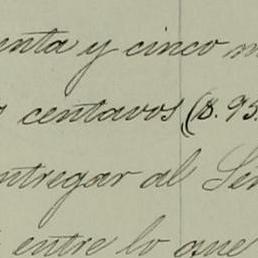 enta y cinco m
centavos (8.95.
ntregar al Señ
entre lo que